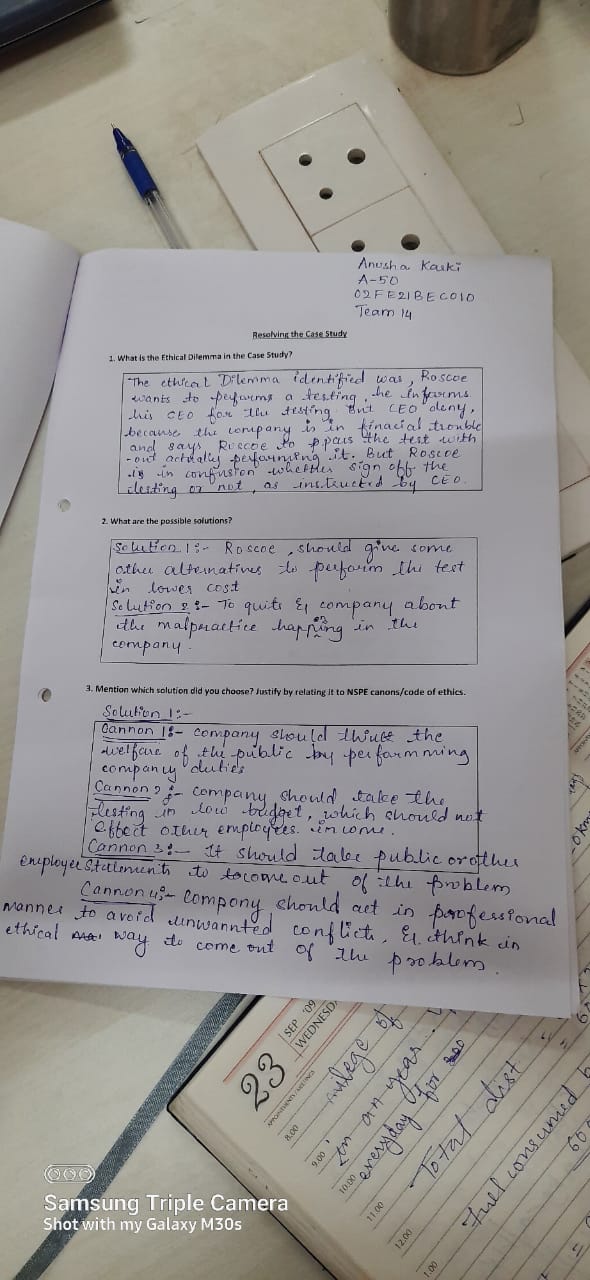 Anusha Karki
A-50
02FE21BEC010
Team 14
Resolving the Case Study
1. What is the Ethical Dilemma in the Case Study?
The ethical Dilemma identified was, Roscoe
wants to performs a testing, he informs
his CEO for the testing But CEO deny,
because the company is in finacial trouble
and says Roscoe to ppass the test with
-out actually performing it. But Roscoe
is in confusion whether sign off the
testing or not, as instructed by CEO.
2. What are the possible solutions?
Solution 1:- Roscoe, should give some
other alternatives to perform the test
in lower cost
Solution 2:- To quits & company about
the malpractice happing in the
company.
3. Mention which solution did you choose? Justify by relating it to NSPE canons/code of ethics.
Solution 1:-
Cannon 1:- company should think the
welfare of the public by performming
company duties
Cannon 2:- company should take the
testing in low budget, which should not
effect other employees. income.
Cannon 3:- It should take public or other
employee Statements to tocome out of the problem
Cannon 4:- Company should act in professional
manner to avoid unwannted conflicts, & think in
ethical way to come out of the problem.
23
SEP '09
WEDNESD
APPOINTMENTS/MEETINGS
8.00
9.00
in an year
10.00
everyday for
11.00
Total dist
12.00
Fuel consumed
1.00
Samsung Triple Camera
Shot with my Galaxy M30s